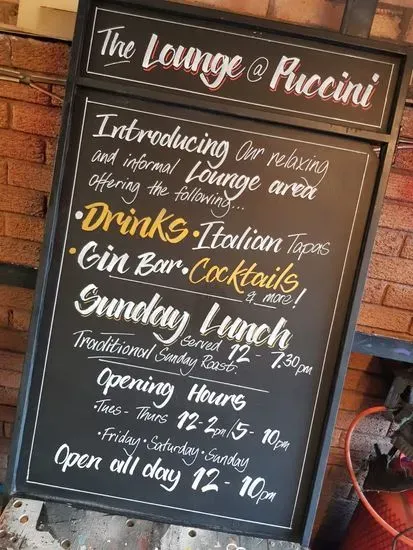 The Lounge @ Puccini
Introducing Our relaxing
and informal Lounge area
offering the following...
• Drinks • Italian Tapas
• Gin Bar • Cocktails
& more!
Sunday Lunch
served 12 - 7.30pm
Traditional Sunday Roast.
Opening Hours
• Tues - Thurs 12-2pm/5-10pm
• Friday • Saturday • Sunday
Open all day 12 - 10pm